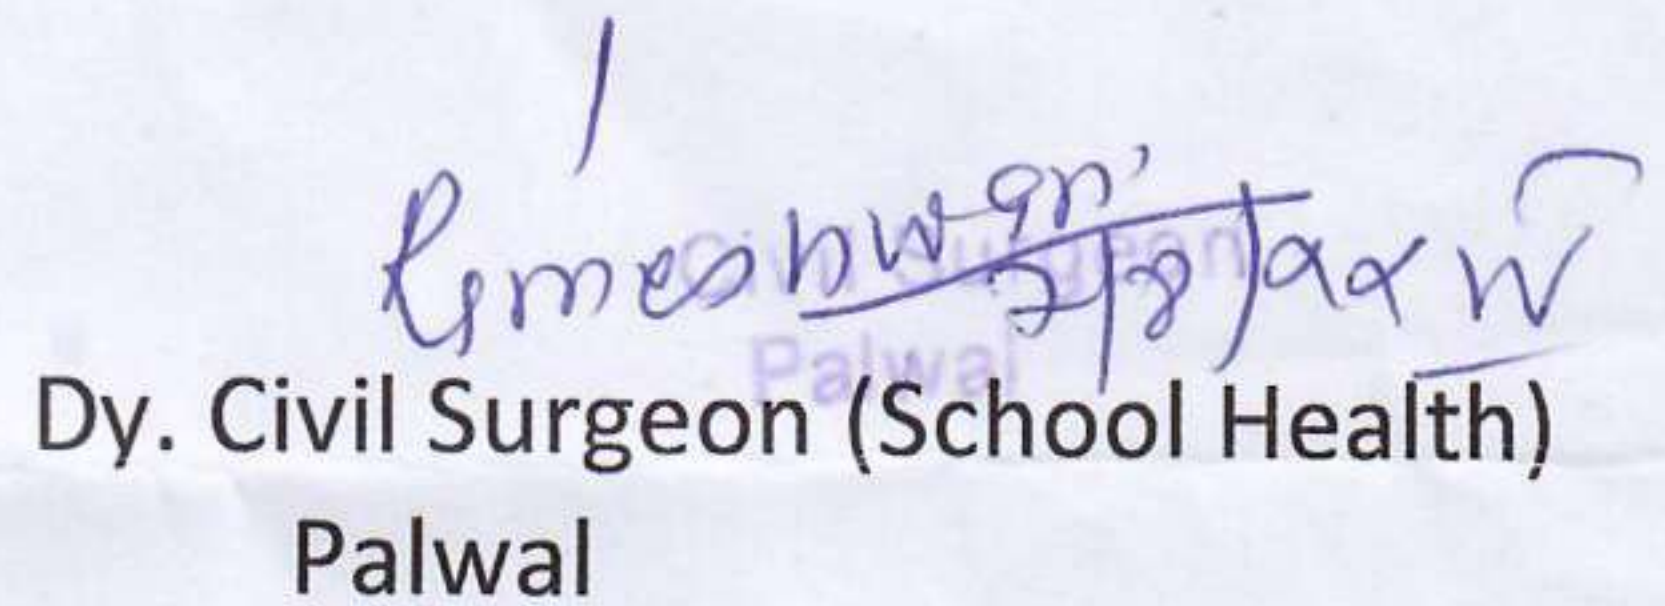 Rameshwari
Civil Surgeon
Palwal
Dy. Civil Surgeon (School Health)
Palwal